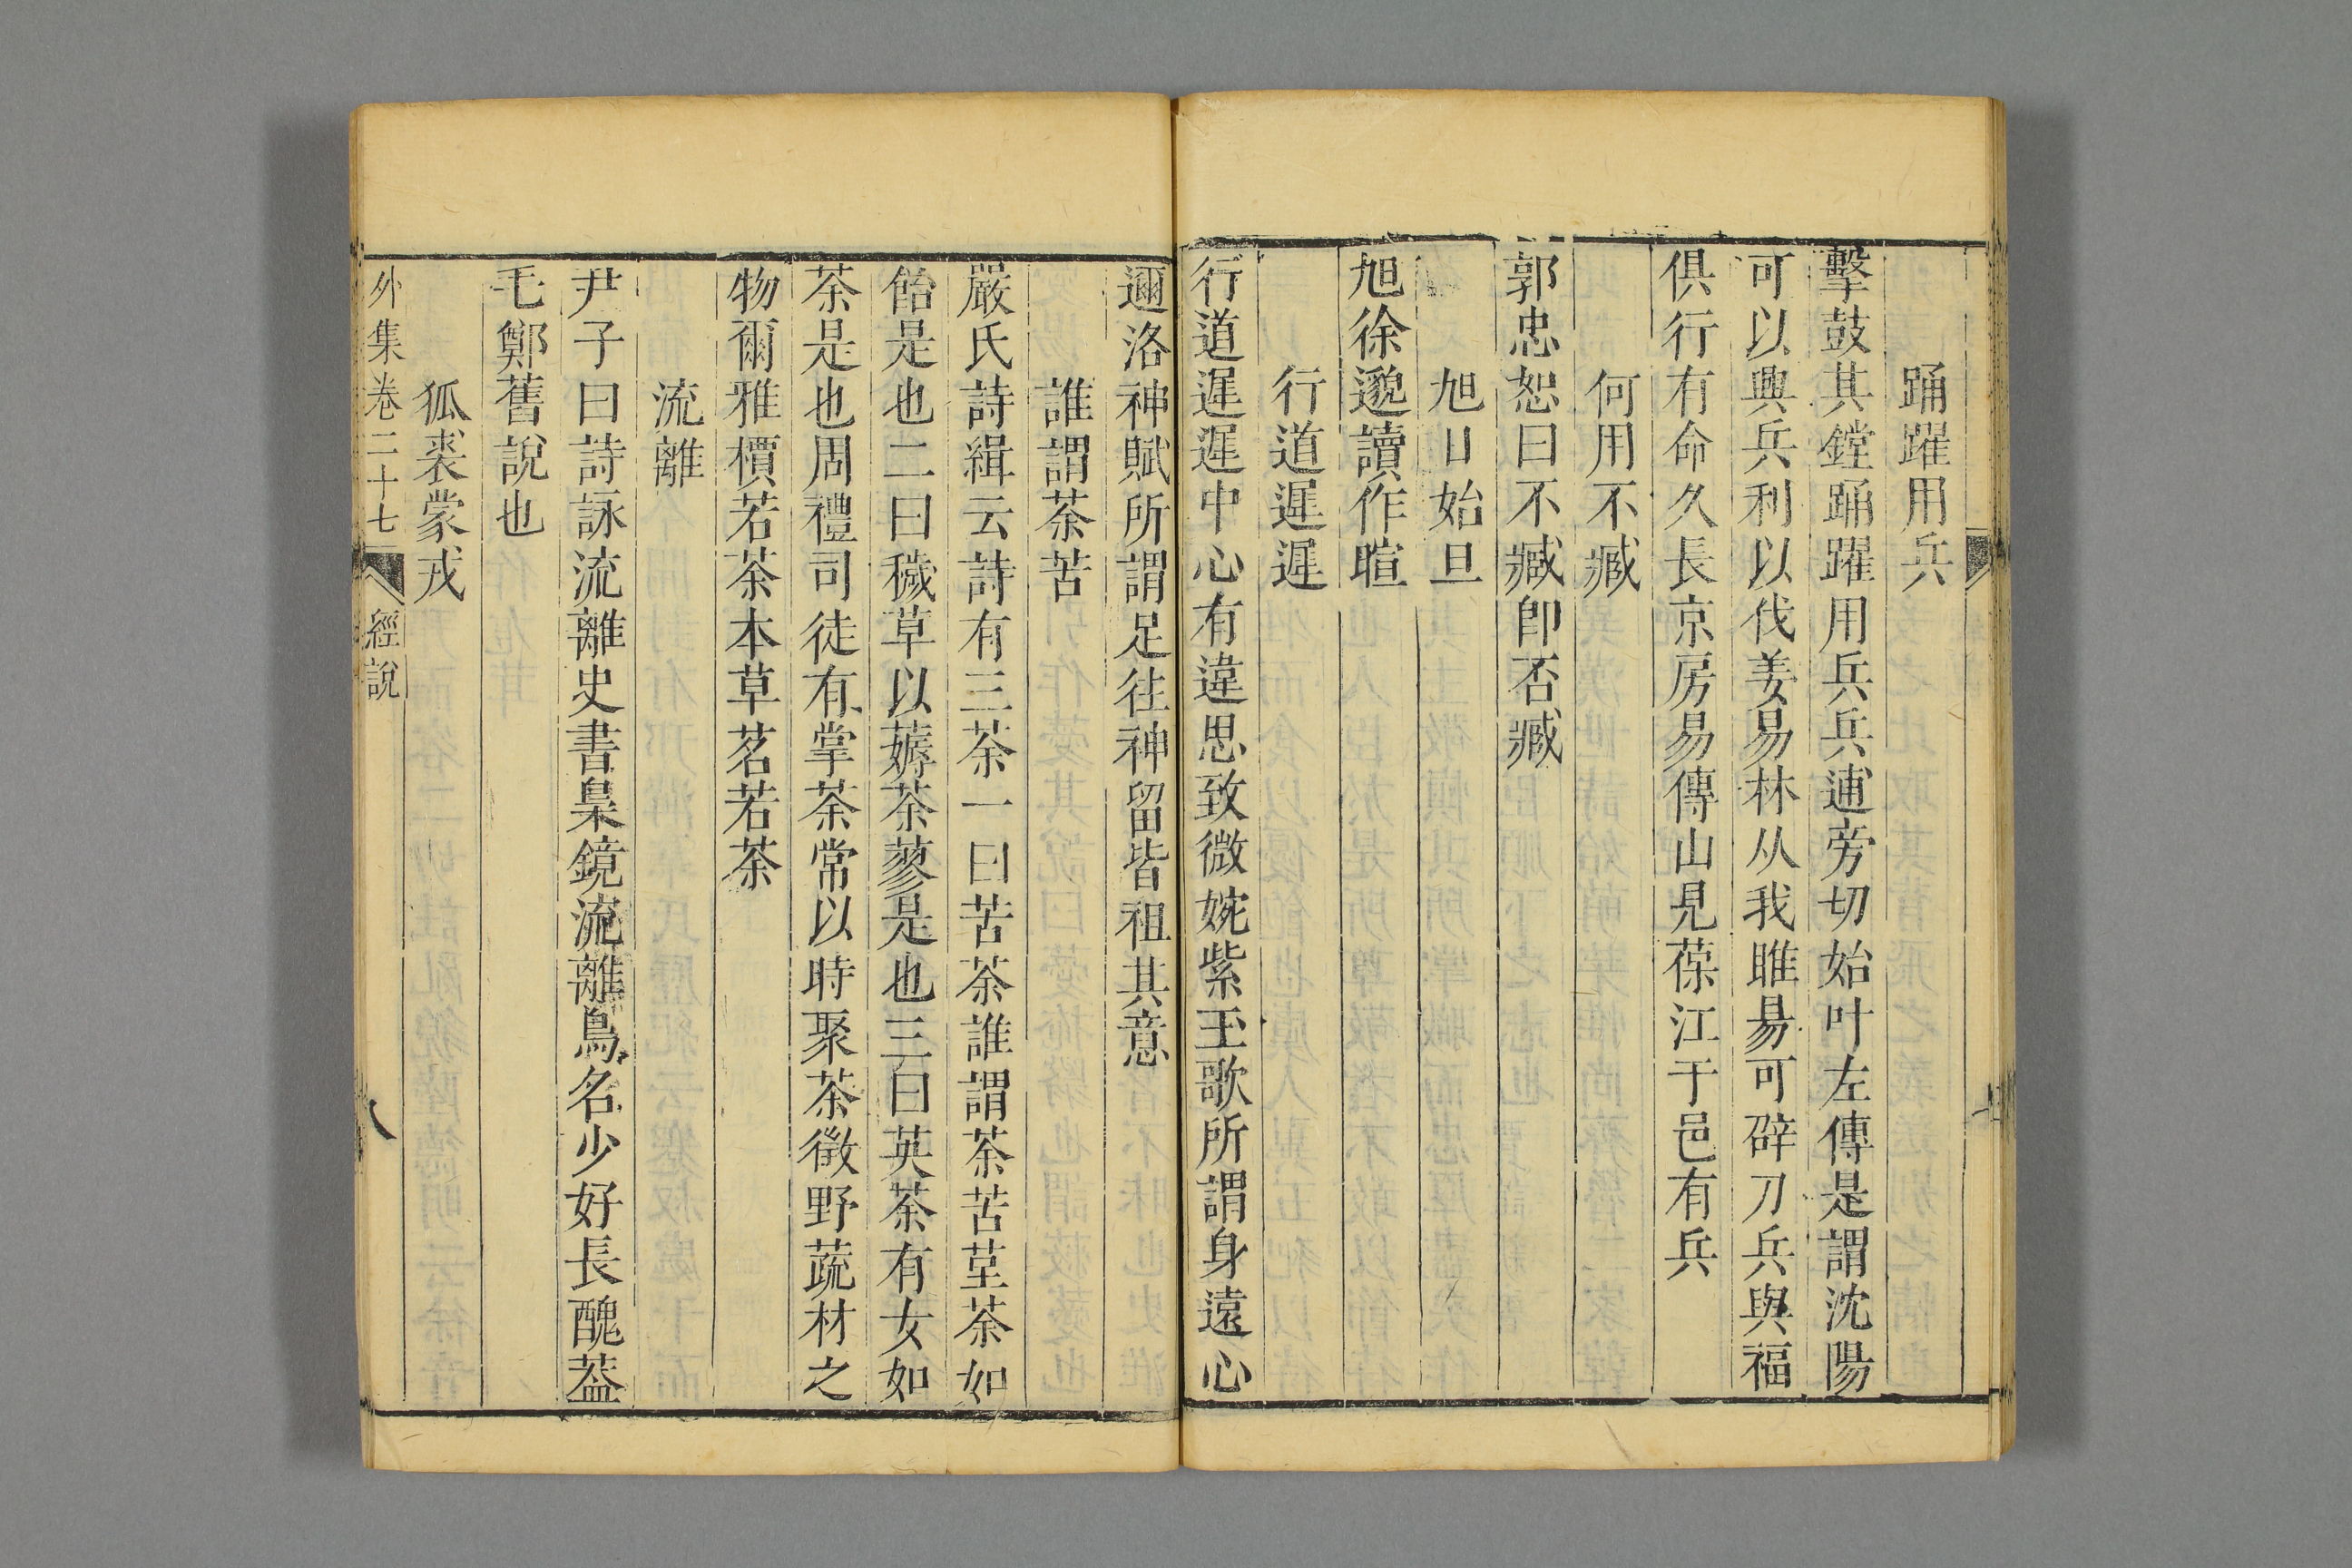 踊躍用兵
擊鼓其鏜踊躍用兵兵逋旁切始叶左傳是謂沈陽
可以興兵利以伐姜易林从我睢昜可辟刀兵與福
俱行有命久長京房易傳山見葆江于邑有兵
何用不臧
郭忠恕曰不臧卽否臧
旭日始旦
旭徐邈讀作暄
行道遲遲
行道遲遲中心有違思致微婉紫玉歌所謂身遠心
邇洛神賦所謂足徃神留皆祖其意
誰謂荼苦
嚴氏詩緝云詩有三荼一曰苦荼誰謂荼苦堇荼如
飴是也二曰穢草以薅荼蓼是也三曰英荼有女如
荼是也周禮司徒有掌荼常以時聚荼徵野蔬材之
物爾雅檟若荼本草茗若荼
流離
尹子曰詩詠流離史書梟鏡流離鳥名少好長醜葢
毛鄭舊說也
狐裘蒙戎
外集卷二十七 經說 八